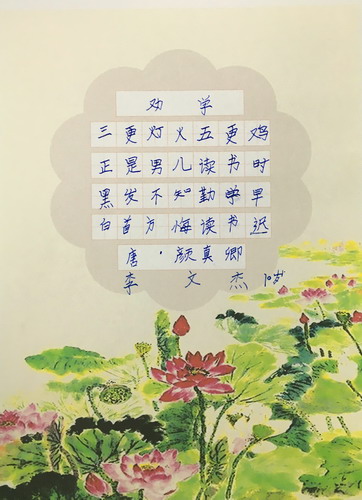 劝学
三更灯火五更鸡
正是男儿读书时
黑发不知勤学早
白首方悔读书迟
唐·颜真卿
李文杰 10岁